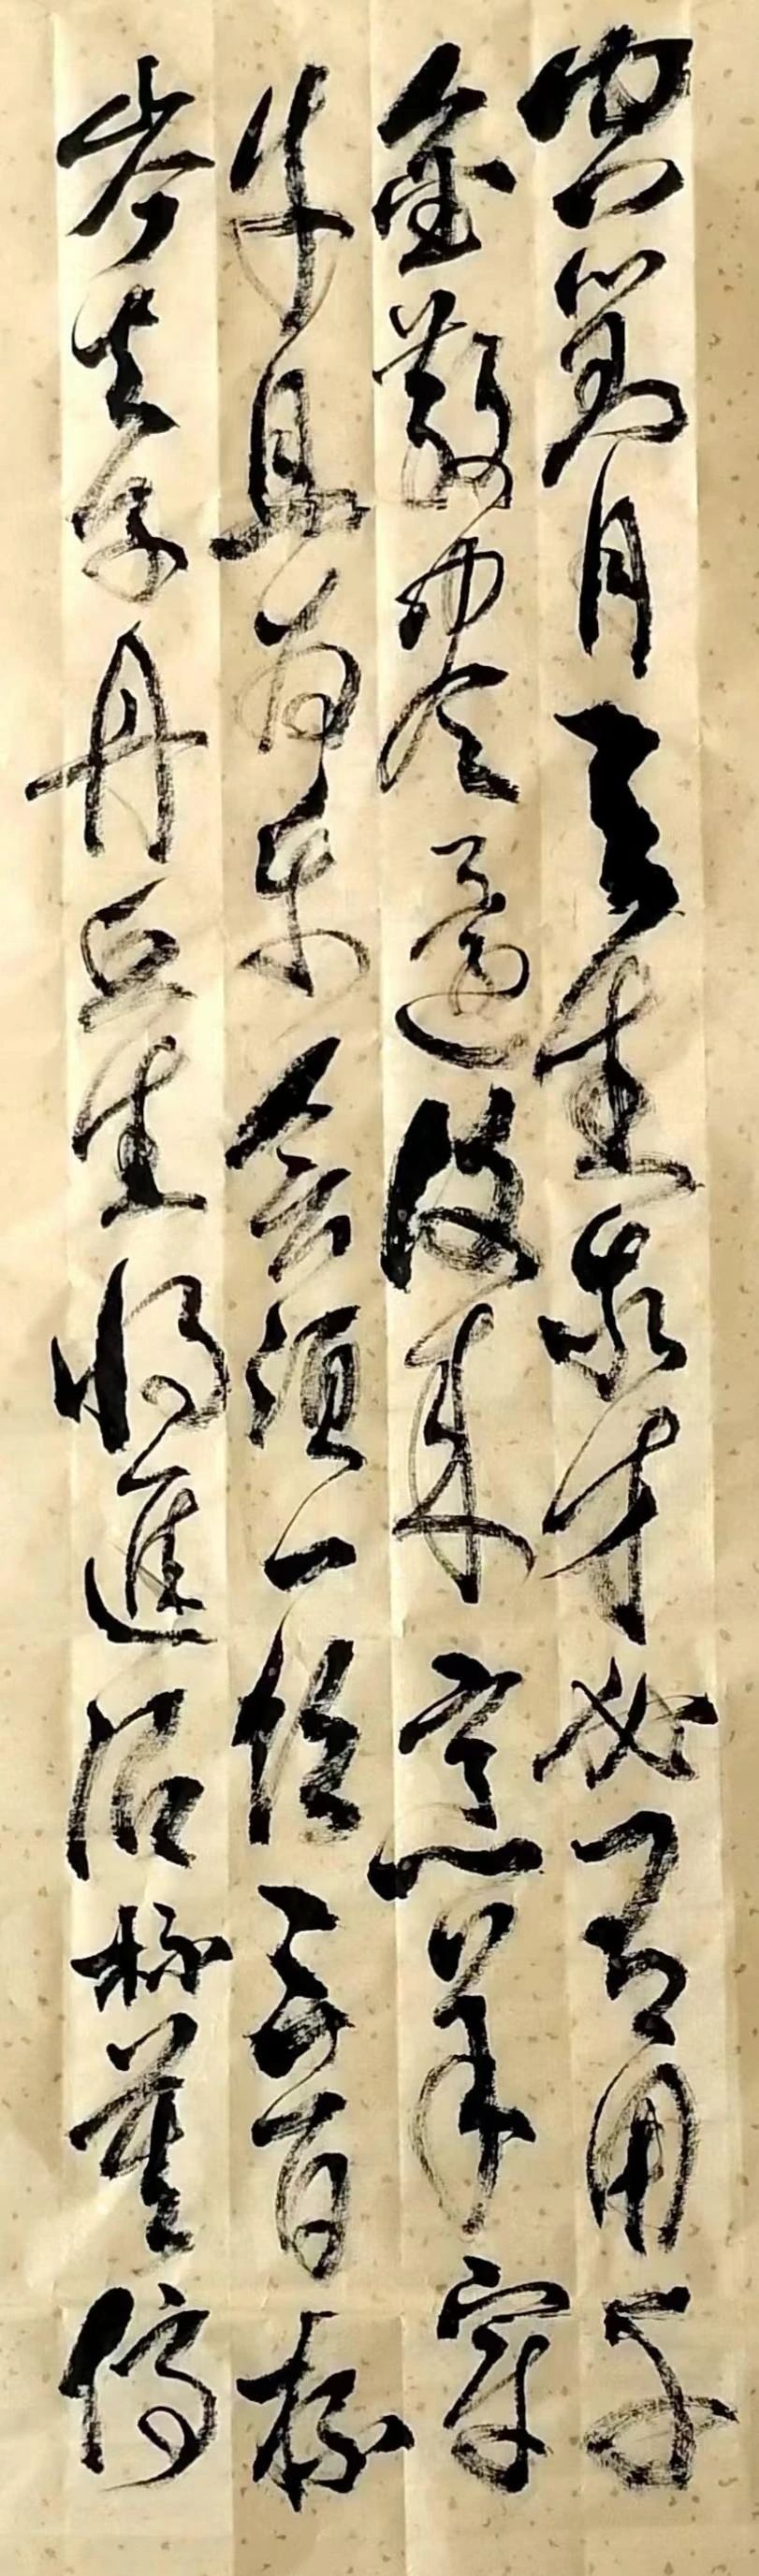 空對月天生我才必有用千
金散盡還復來烹羊宰
牛且為樂會須一飲三百杯
岑夫子丹丘生將進酒杯莫停